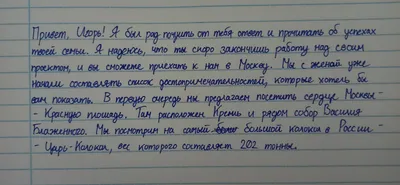 Привет, Игорь! Я был рад получить от тебя ответ и прочитать об успехах
твоей семьи. Я надеюсь, что ты скоро закончишь работу над своим
проектом, и вы сможете приехать к нам в Москву. Мы с женой уже
начали составлять список достопримечательностей, которые хотел бы
вам показать. В первую очередь мы предлагаем посетить сердце Москвы-
- Красную площадь. Там расположен Кремль и рядом собор Василия
Блаженного. Мы посмотрим на самый большой колокол в России -
- Царь-Колокол, вес которого составляет 202 тонны.